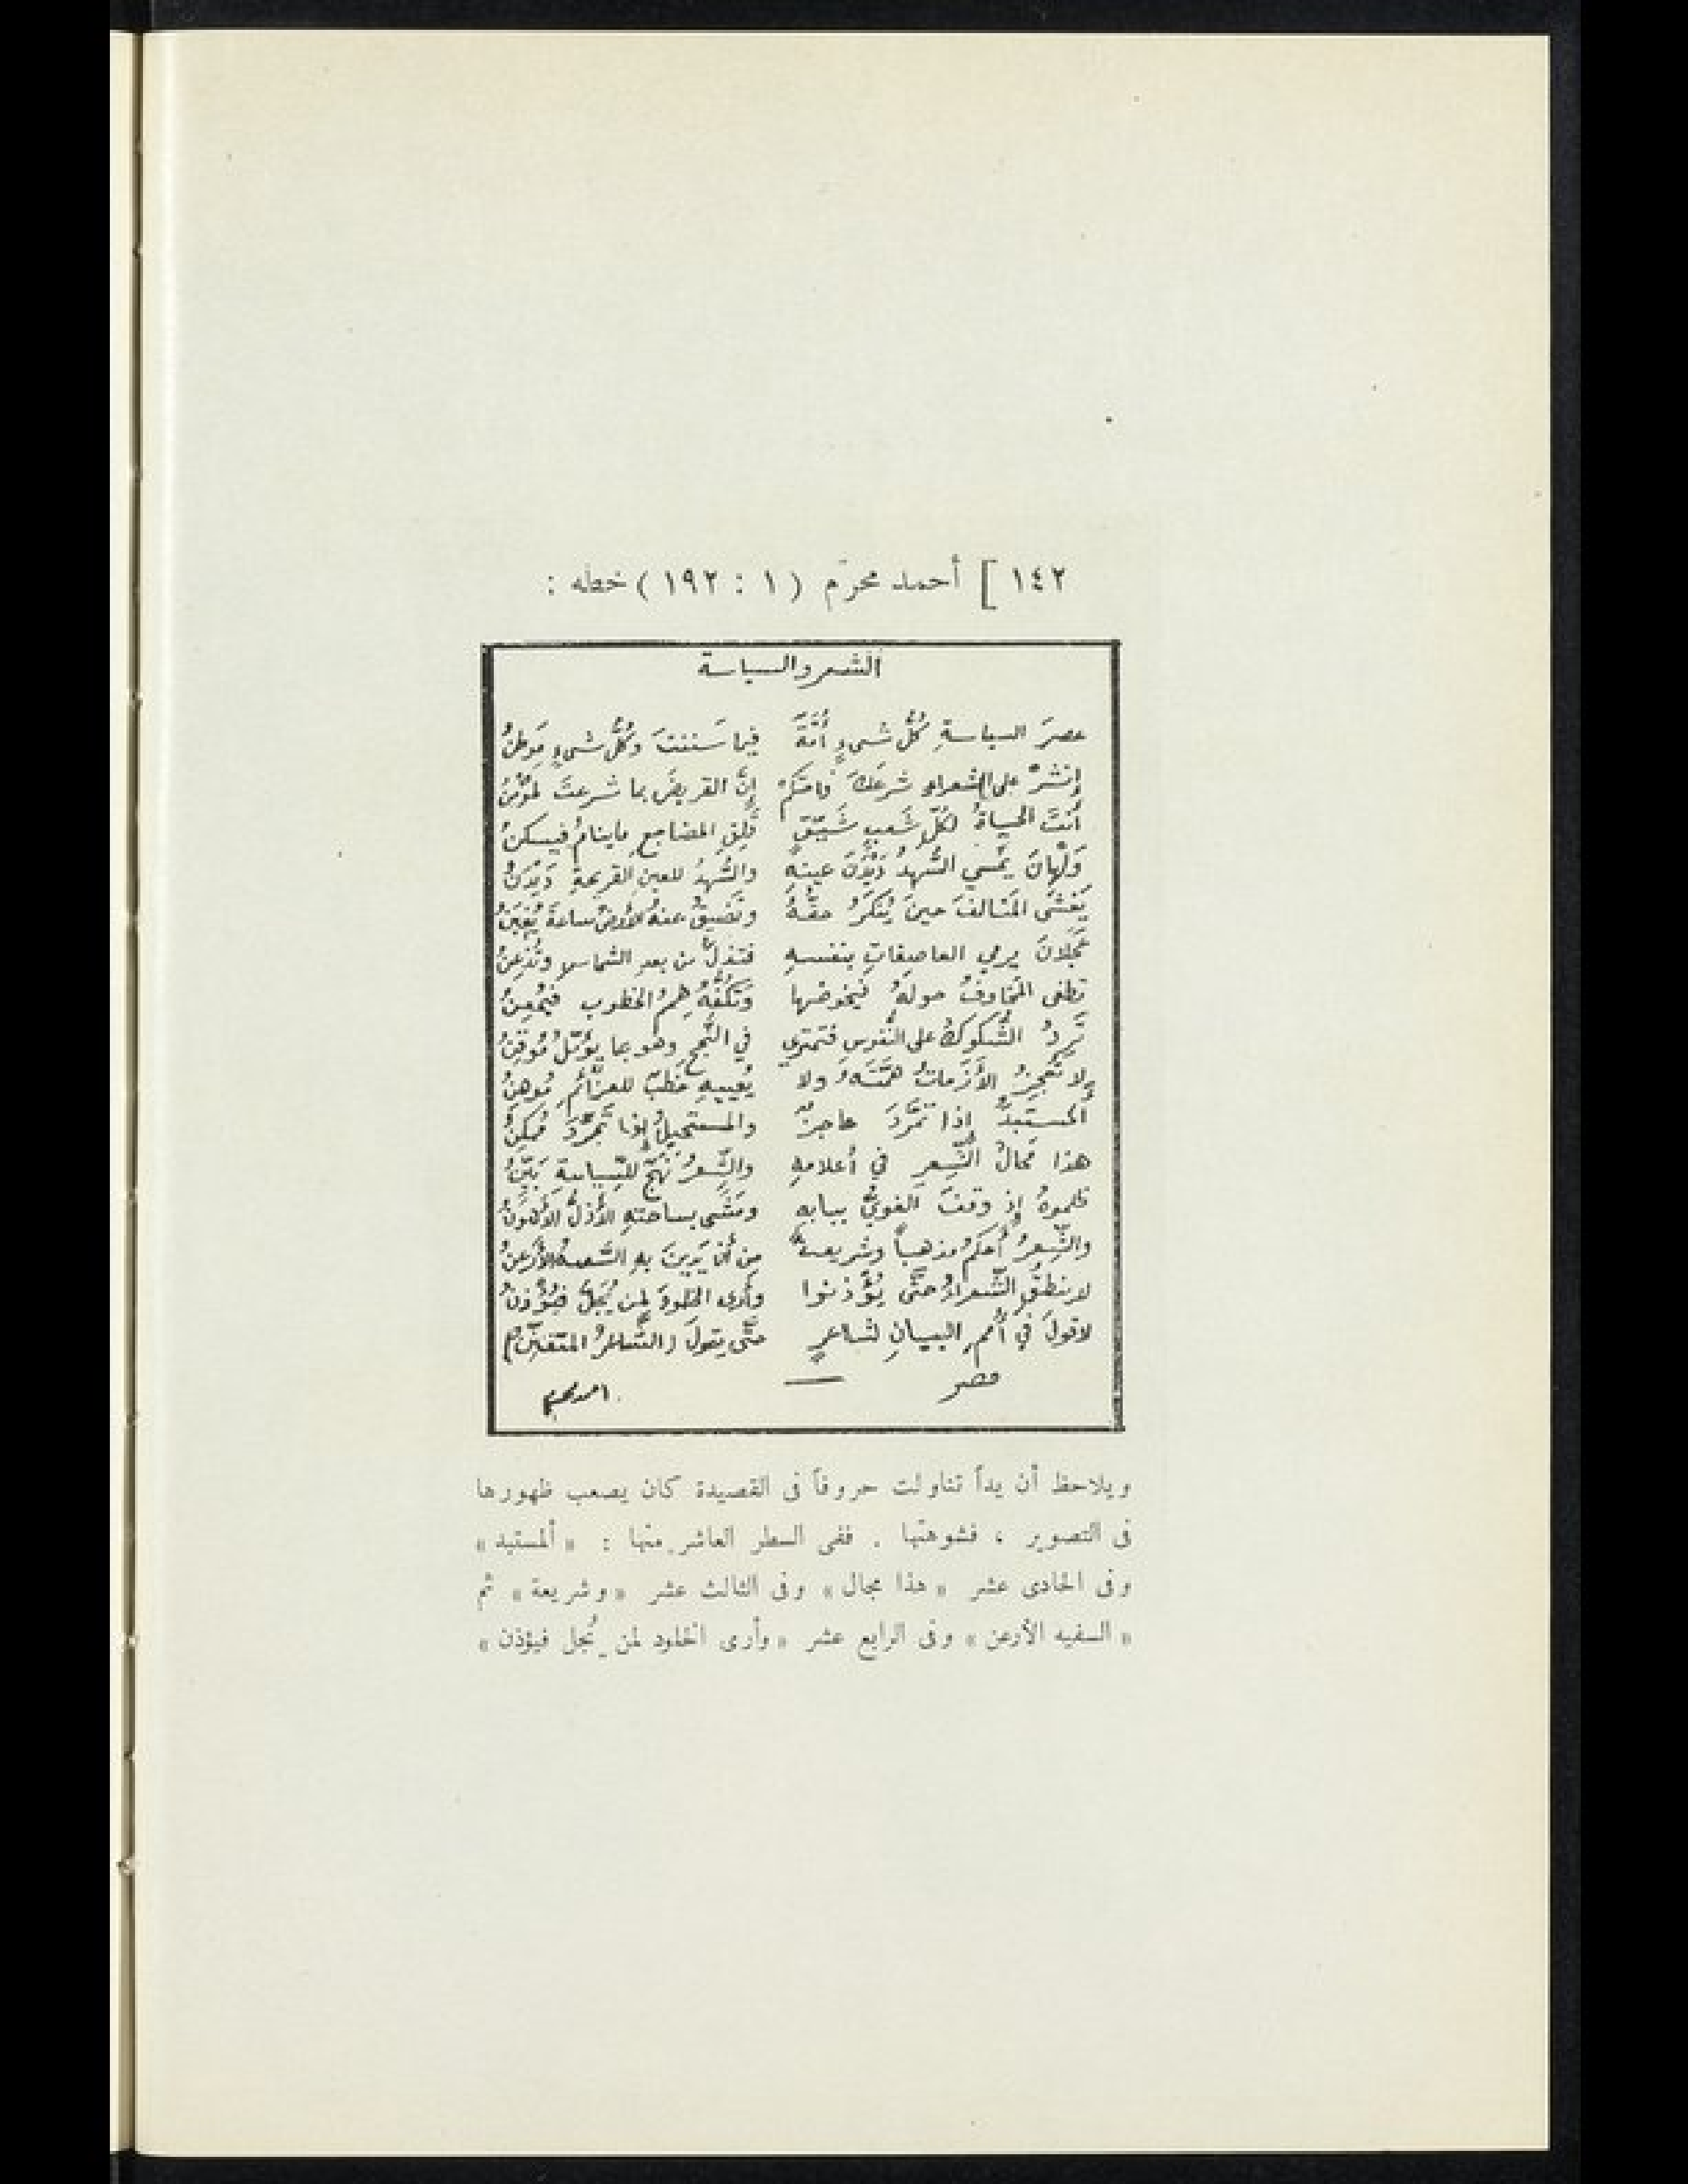 ١٤٢ ] أحمد محرّم ( ١ : ١٩٢ ) خطه :
الشعر والسياسة
عصرَ السياسةِ كُلُّ شىءٍ أُمَّةٌ فيما سَننتَ وكُلُّ شىءٍ مَوطنُ
إنشرْ على الشعراءِ شرعَكَ فاحتكمْ إنَّ القريضَ بما شرعتَ لمؤمنُ
أنتَ الحياةُ لكلِّ شعبٍ شَيِّقٍ قَلِقِ المضاجعِ ماينامُ فيسكنُ
وَلْهانَ يمسي السُّهدُ دَيْدَنَ عينهِ والسُّهدُ للعينِ القريحةِ دَيدَنُ
يَغشَى المَتالفَ حينَ يُنكَرُ حقُّهُ وتَضيقُ عنهُ الأرضُ ساعةَ يُغبَنُ
عَجلانَ يرمي العاصفاتِ بنفسهِ فتذلُّ من بعدِ الشماسِ وتُذعِنُ
تطغى المَخاوفُ حولهُ فيخوضها وتكُفُّهُ هِمُ الخطوبِ فيُمعِنُ
تَرِدُ الشُّكوكُ على النُّفوسِ فتمتري في النُّجحِ وهو بما يؤمّلُ مُوقِنُ
لا تُعجِزُ الأزَماتُ همَّتَهُ ولا يُعييهِ خَطبٌ للعزائمِ مُوهِنُ
ألمستبدُّ إذا تمَّردَ عاجزٌ والمستحيلُ إذا تَجرَّدَ مُمكِنُ
هذا مَجالُ الشِّعرِ في أعلامهِ والشِّعرُ نَهجٌ للسِّياسةِ بَيِّنُ
ظلموهُ إذ وقفَ الغويُّ ببابهِ ومَشَى بساحتهِ الأذلُّ الأهونُ
والشِّعرُ أحكمُ مذهباً وشريعةً من أن يَدينَ بهِ السَّفيهُ الأرعنُ
لاينطقِ الشُّعراءُ حتَّى يُؤذنوا وأرى الخلودَ لِمن يُجِلُّ فيُؤذنُ
لاقولَ في أُممِ البيانِ لشاعرٍ حتَّى يقولَ (الشَّاعرُ المتفنِّنُ)
مصر احمد محرم
ويلاحظ أن يداً تناولت حروفاً فى القصيدة كان يصعب ظهورها
فى التصوير ، فشوهتها . ففى السطر العاشر منها : « ألمستبد »
وفى الحادى عشر « هذا مجال » وفى الثالث عشر « وشريعة » ثم
« السفيه الأرعن » وفى الرابع عشر « وأرى الخلود لمن يُجل فيؤذن »